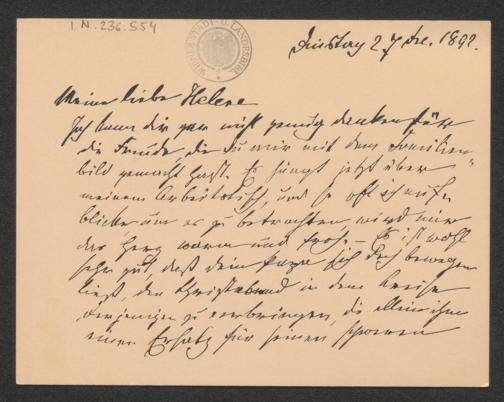 I.N. 236.554
WIENER STADT- U. LANDESBIBL.
Dinstag 27 Dec. 1892.
Meine liebe Helene
Ich kann dir gar nicht genug danken für
die Freude, die Du mir mit dem Familien-
bild gemacht hast. Es hängt jetzt über
meinem Arbeitstisch, und so oft ich aufs
blicke um es zu betrachten wird mir
das Herz warm und froh. – Es ist wohl
sehr gut, daß dein Papa sich bewegen
ließ, den Christabend in dem Kreise
derjenigen zu verbringen, die allein ihm
einen Ersatz für seinen schweren